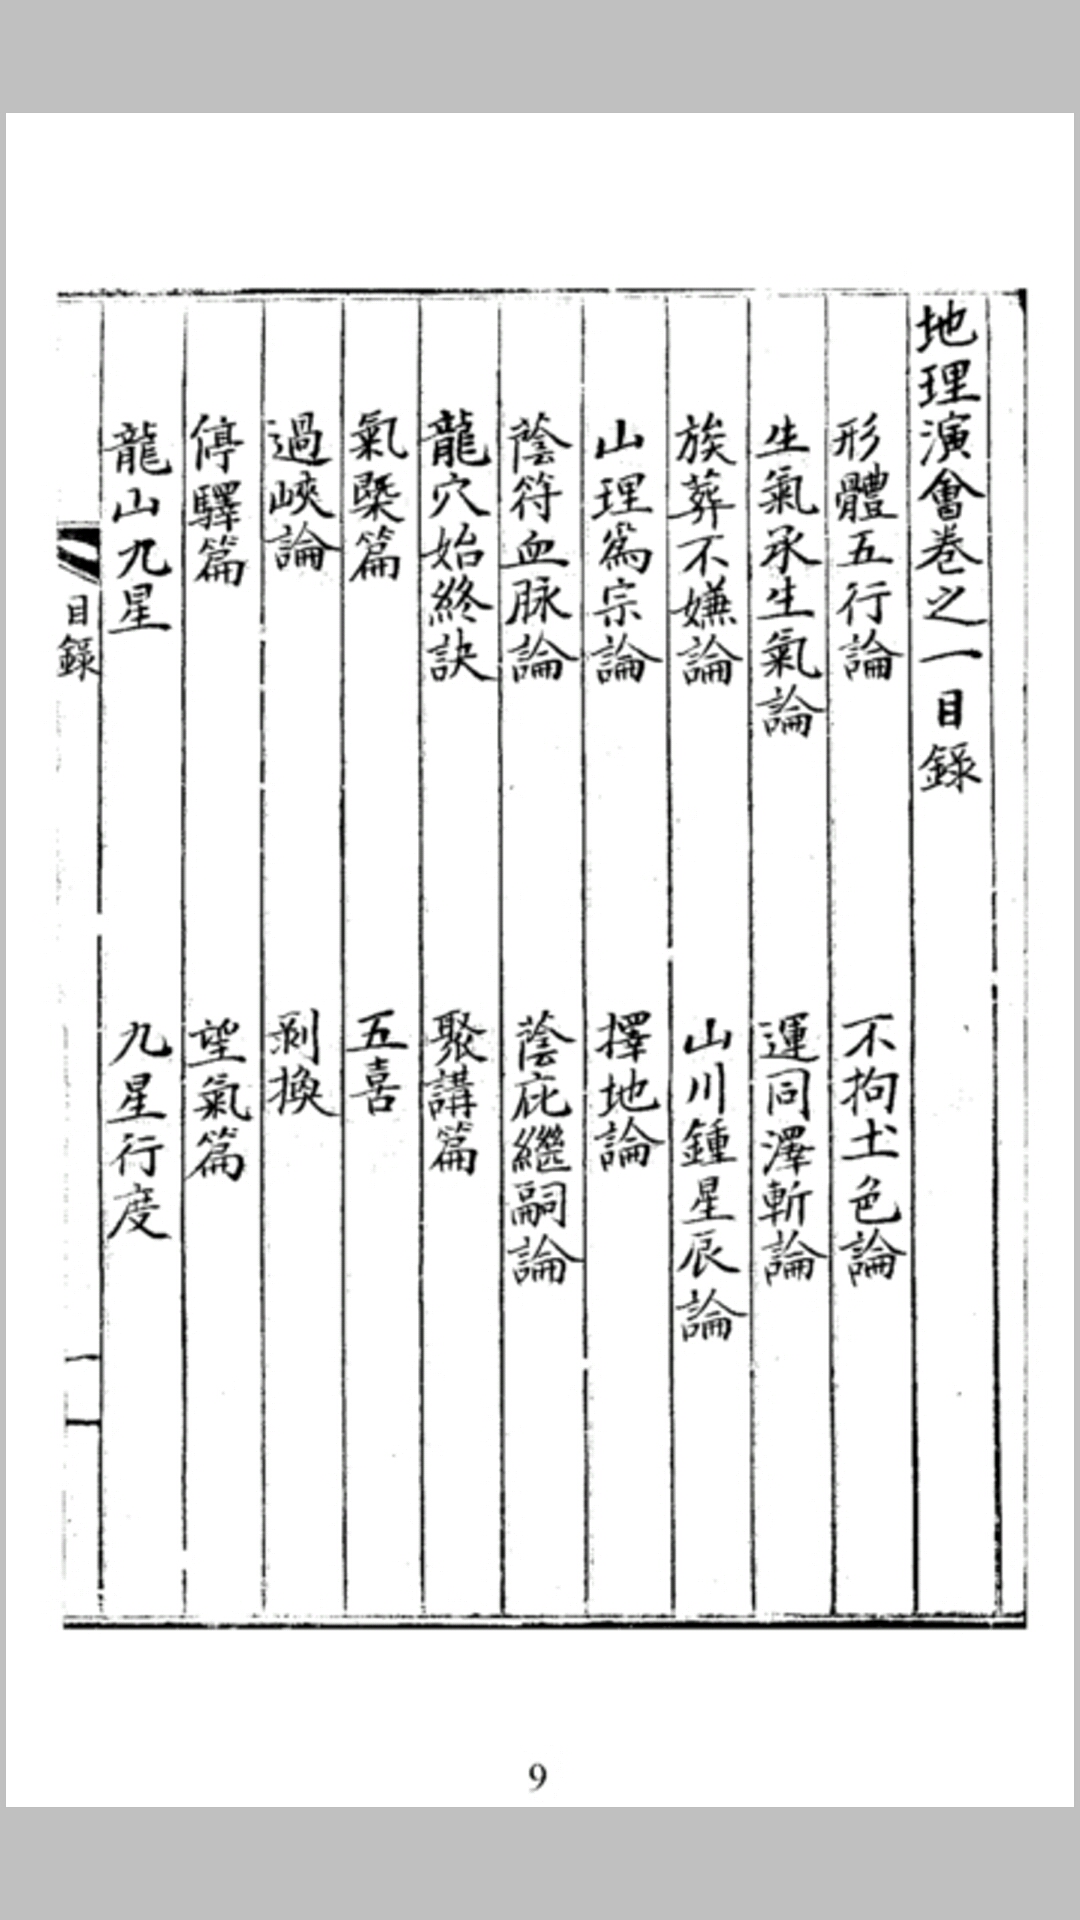 地理演會卷之一目錄
形體五行論　不拘土色論
生氣承生氣論　運同澤斬論
族葬不嫌論　山川鍾星辰論
山理為宗論　擇地論
蔭符血脉論　蔭庇繼嗣論
龍穴始終訣　聚講篇
氣槩篇　五喜
過峽論　剥換
停驛篇　望氣篇
龍山九星　九星行度
目錄
一
9